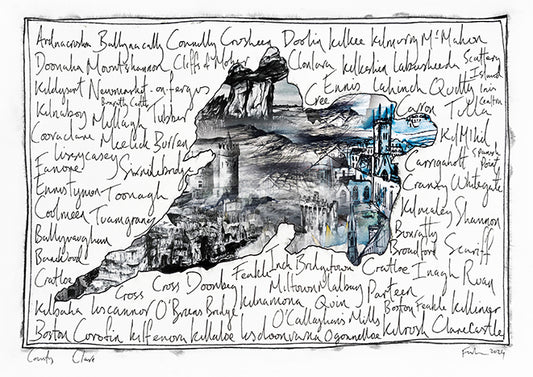 Ardnacrusha Ballynacally Connolly Crusheen Doolin Kilkee Kilmurry McMahon
Doonaha Mountshannon Cliffs of Moher Clonlara Kilkishen Labasheeda Scattery Island
Kildysart Newmarket-on-fergus Cree Ennis Lahinch Quilty Inis Cealtra
Bunratty Castle
Kilnaboy Mullagh Tubber Carron Tulla
Cooraclare Meelick Burren KilMihil
Lissycasey Carrigaholt
Fanore Sixmilebridge Point
Ennistymon Toonagh Cranny Whitegate
Coolmeen Tuamgraney Kilmaley Shannon
Ballyvaughan Bunratty
Broadford Scariff
Cratloe Cross Cross Doonbeg Feakle Inch Bridgetown Cratloe Inagh Ruan
Kilbaha Liscannor O'Briens Bridge Kilnamona Miltown Malbay Quin Parteen Boston Feakle Killimer
O'Callaghans Mills
Boston Corofin Kilfenora Killaloe Lisdoonvarna Ogonnelloe Kilrush ClareCastle
County Clare 2024